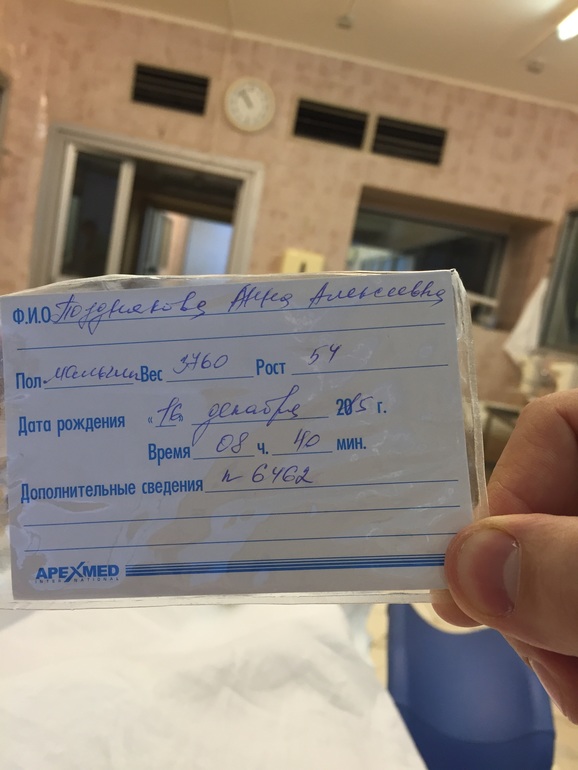 Ф.И.О. Позднякова Анна Алексеевна
Пол мальчик Вес 3760 Рост 54
Дата рождения «16» декабря 2015 г.
Время 08 ч. 40 мин.
Дополнительные сведения n 6462
APEXMED
INTERNATIONAL